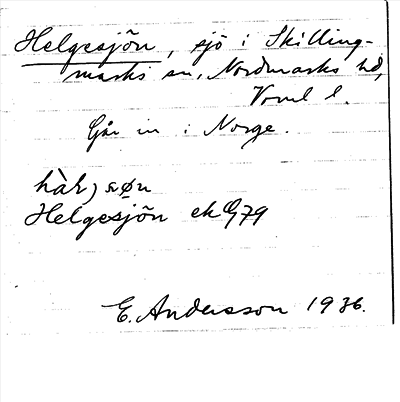 Helgesjön, sjö i Skilling-
marks sn, Nordmarks hd,
Värml l.
Går in i Norge.
Helgesjön ek G79
E. Andersson 1936.